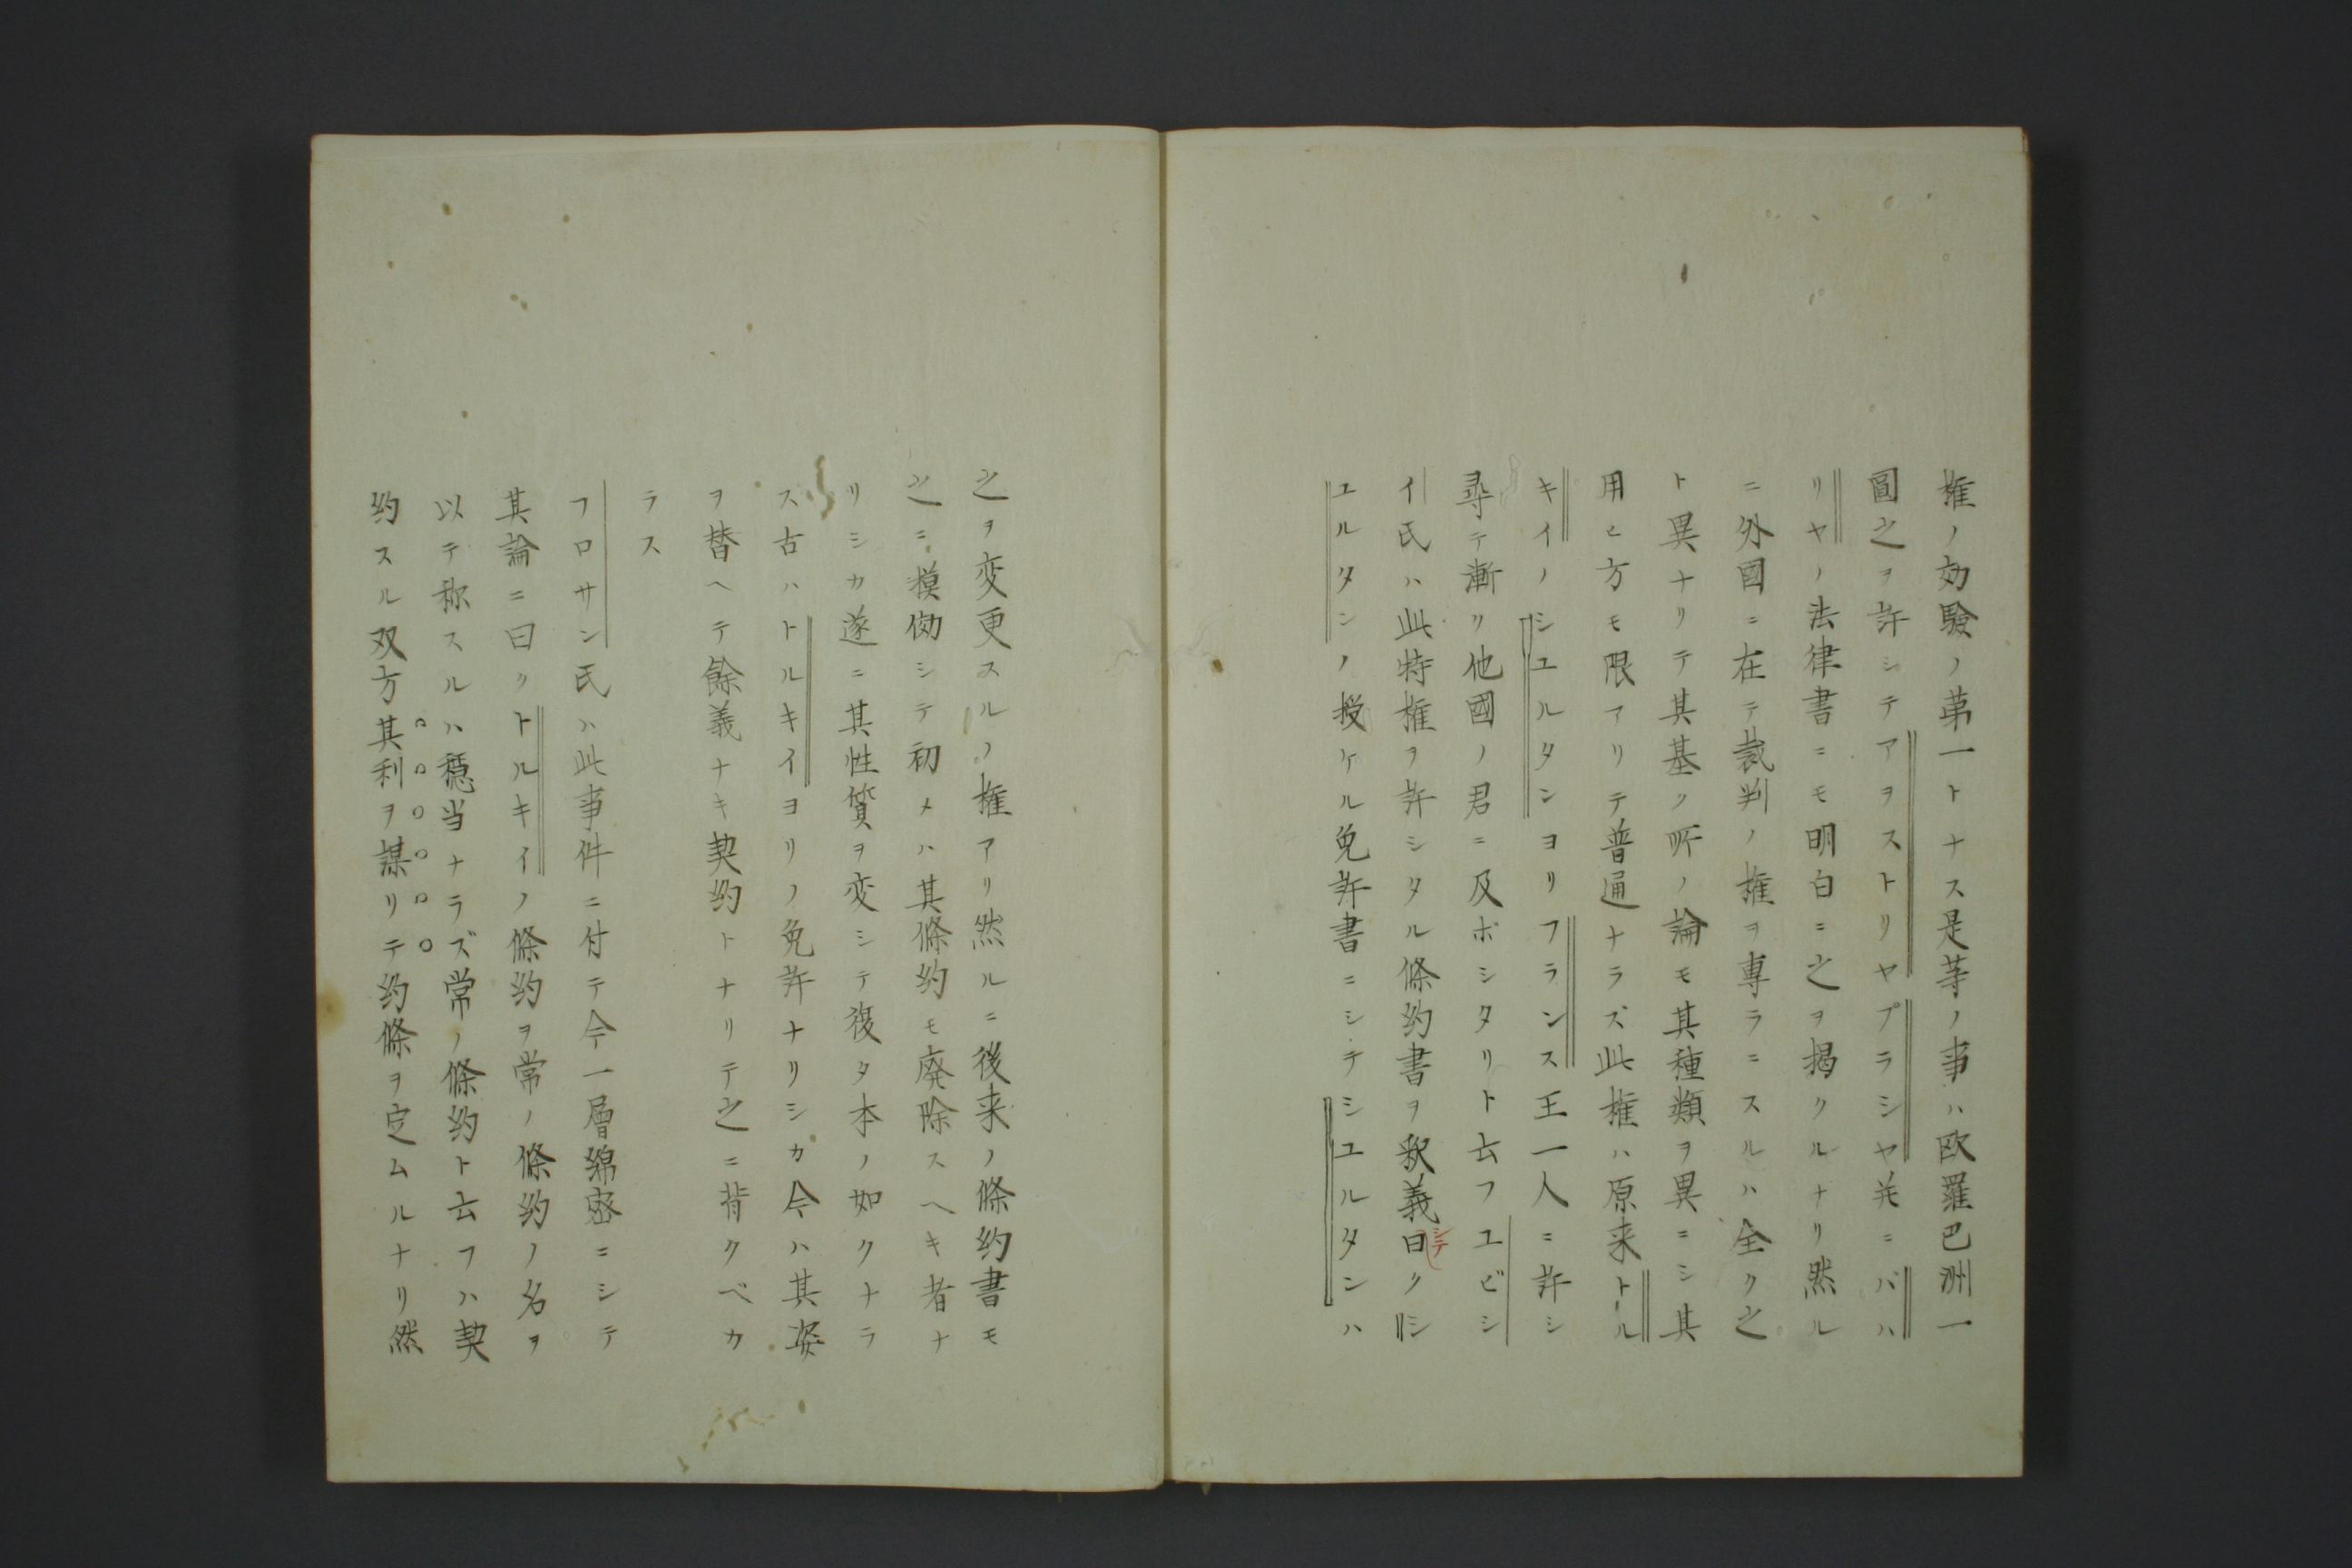 権ノ効験ノ第一トナス是等ノ事ハ欧羅巴洲一
圓之ヲ許シテアヲストリヤプラシヤ並ニバハ
リヤノ法律書ニモ明白ニ之ヲ掲クルナリ然ル
ニ外國ニ在テ裁判ノ権ヲ専ラニスルハ全ク之
ト異ナリテ其基ク所ノ論モ其種類ヲ異ニシ其
用ヒ方モ限アリテ普通ナラズ此権ハ原来トル
キイノシユルタンヨリフランス王一人ニ許シ
尋テ漸リ他國ノ君ニ及ボシタリト云フユビシ
イ氏ハ此特権ヲ許シタル條約書ヲ釈義シテ曰クシ
ユルタンノ授ケル免許書ニシテシユルタンハ
之ヲ変更スルノ権アリ然ルニ後来ノ條約書モ
之ニ模倣シテ初メハ其條約モ廃除スヘキ者ナ
リシカ遂ニ其性質ヲ変シテ復タ本ノ如クナラ
ス古ハトルキイヨリノ免許ナリシカ今ハ其姿
ヲ替ヘテ餘義ナキ契約トナリテ之ニ背クベカ
ラス
フロサン氏ハ此事件ニ付テ今一層綿密ニシテ
其論ニ曰クトルキイノ條約ヲ常ノ條約ノ名ヲ
以テ称スルハ穏当ナラズ常ノ條約ト云フハ契
約スル双方其利ヲ謀リテ約條ヲ定ムルナリ然